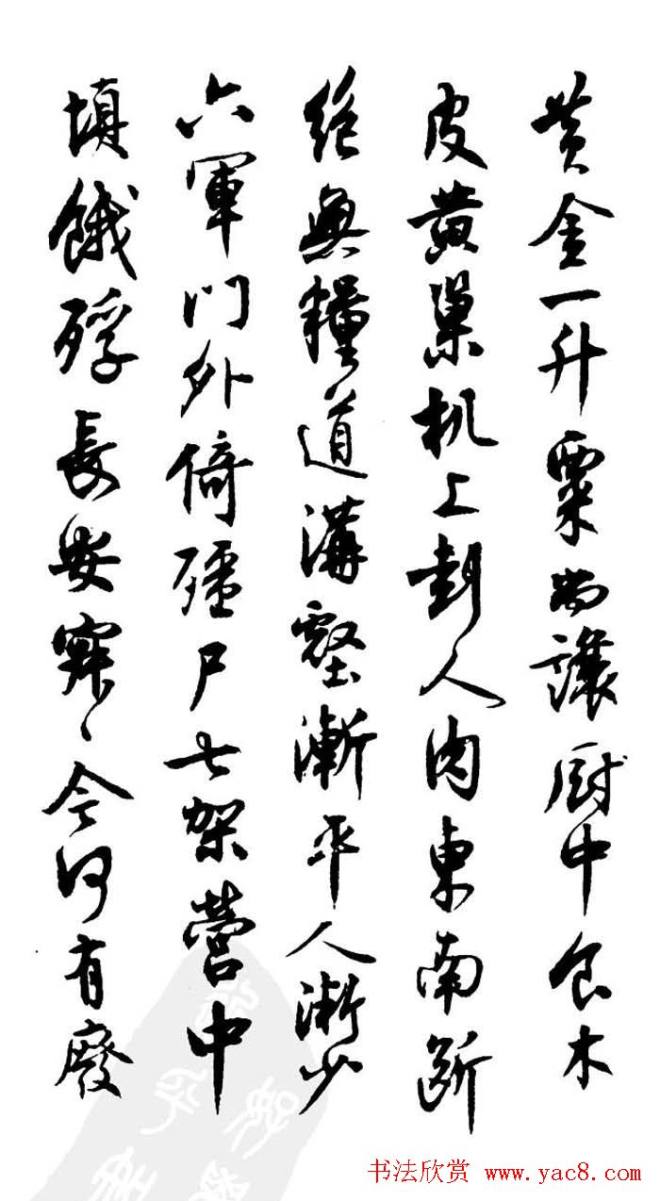 黄金一升粟尚讓厨中食木
皮黄巢机上刲人肉東南斷
絶無糧道溝壑漸平人漸少
六軍門外倚殭尸七架營中
填餓殍長安寂〻今何有廢
书法欣赏 www.yac8.com